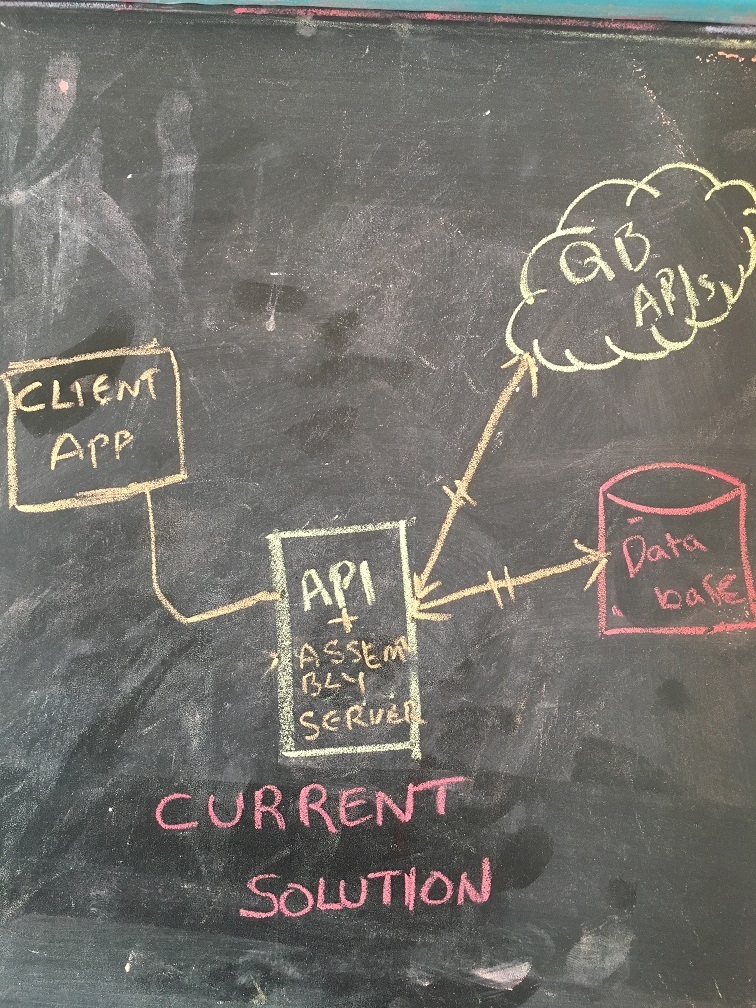 QB
APIs
CLIENT
APP
API
+
ASSEM
BLY
SERVER
Data
base
CURRENT
SOLUTION